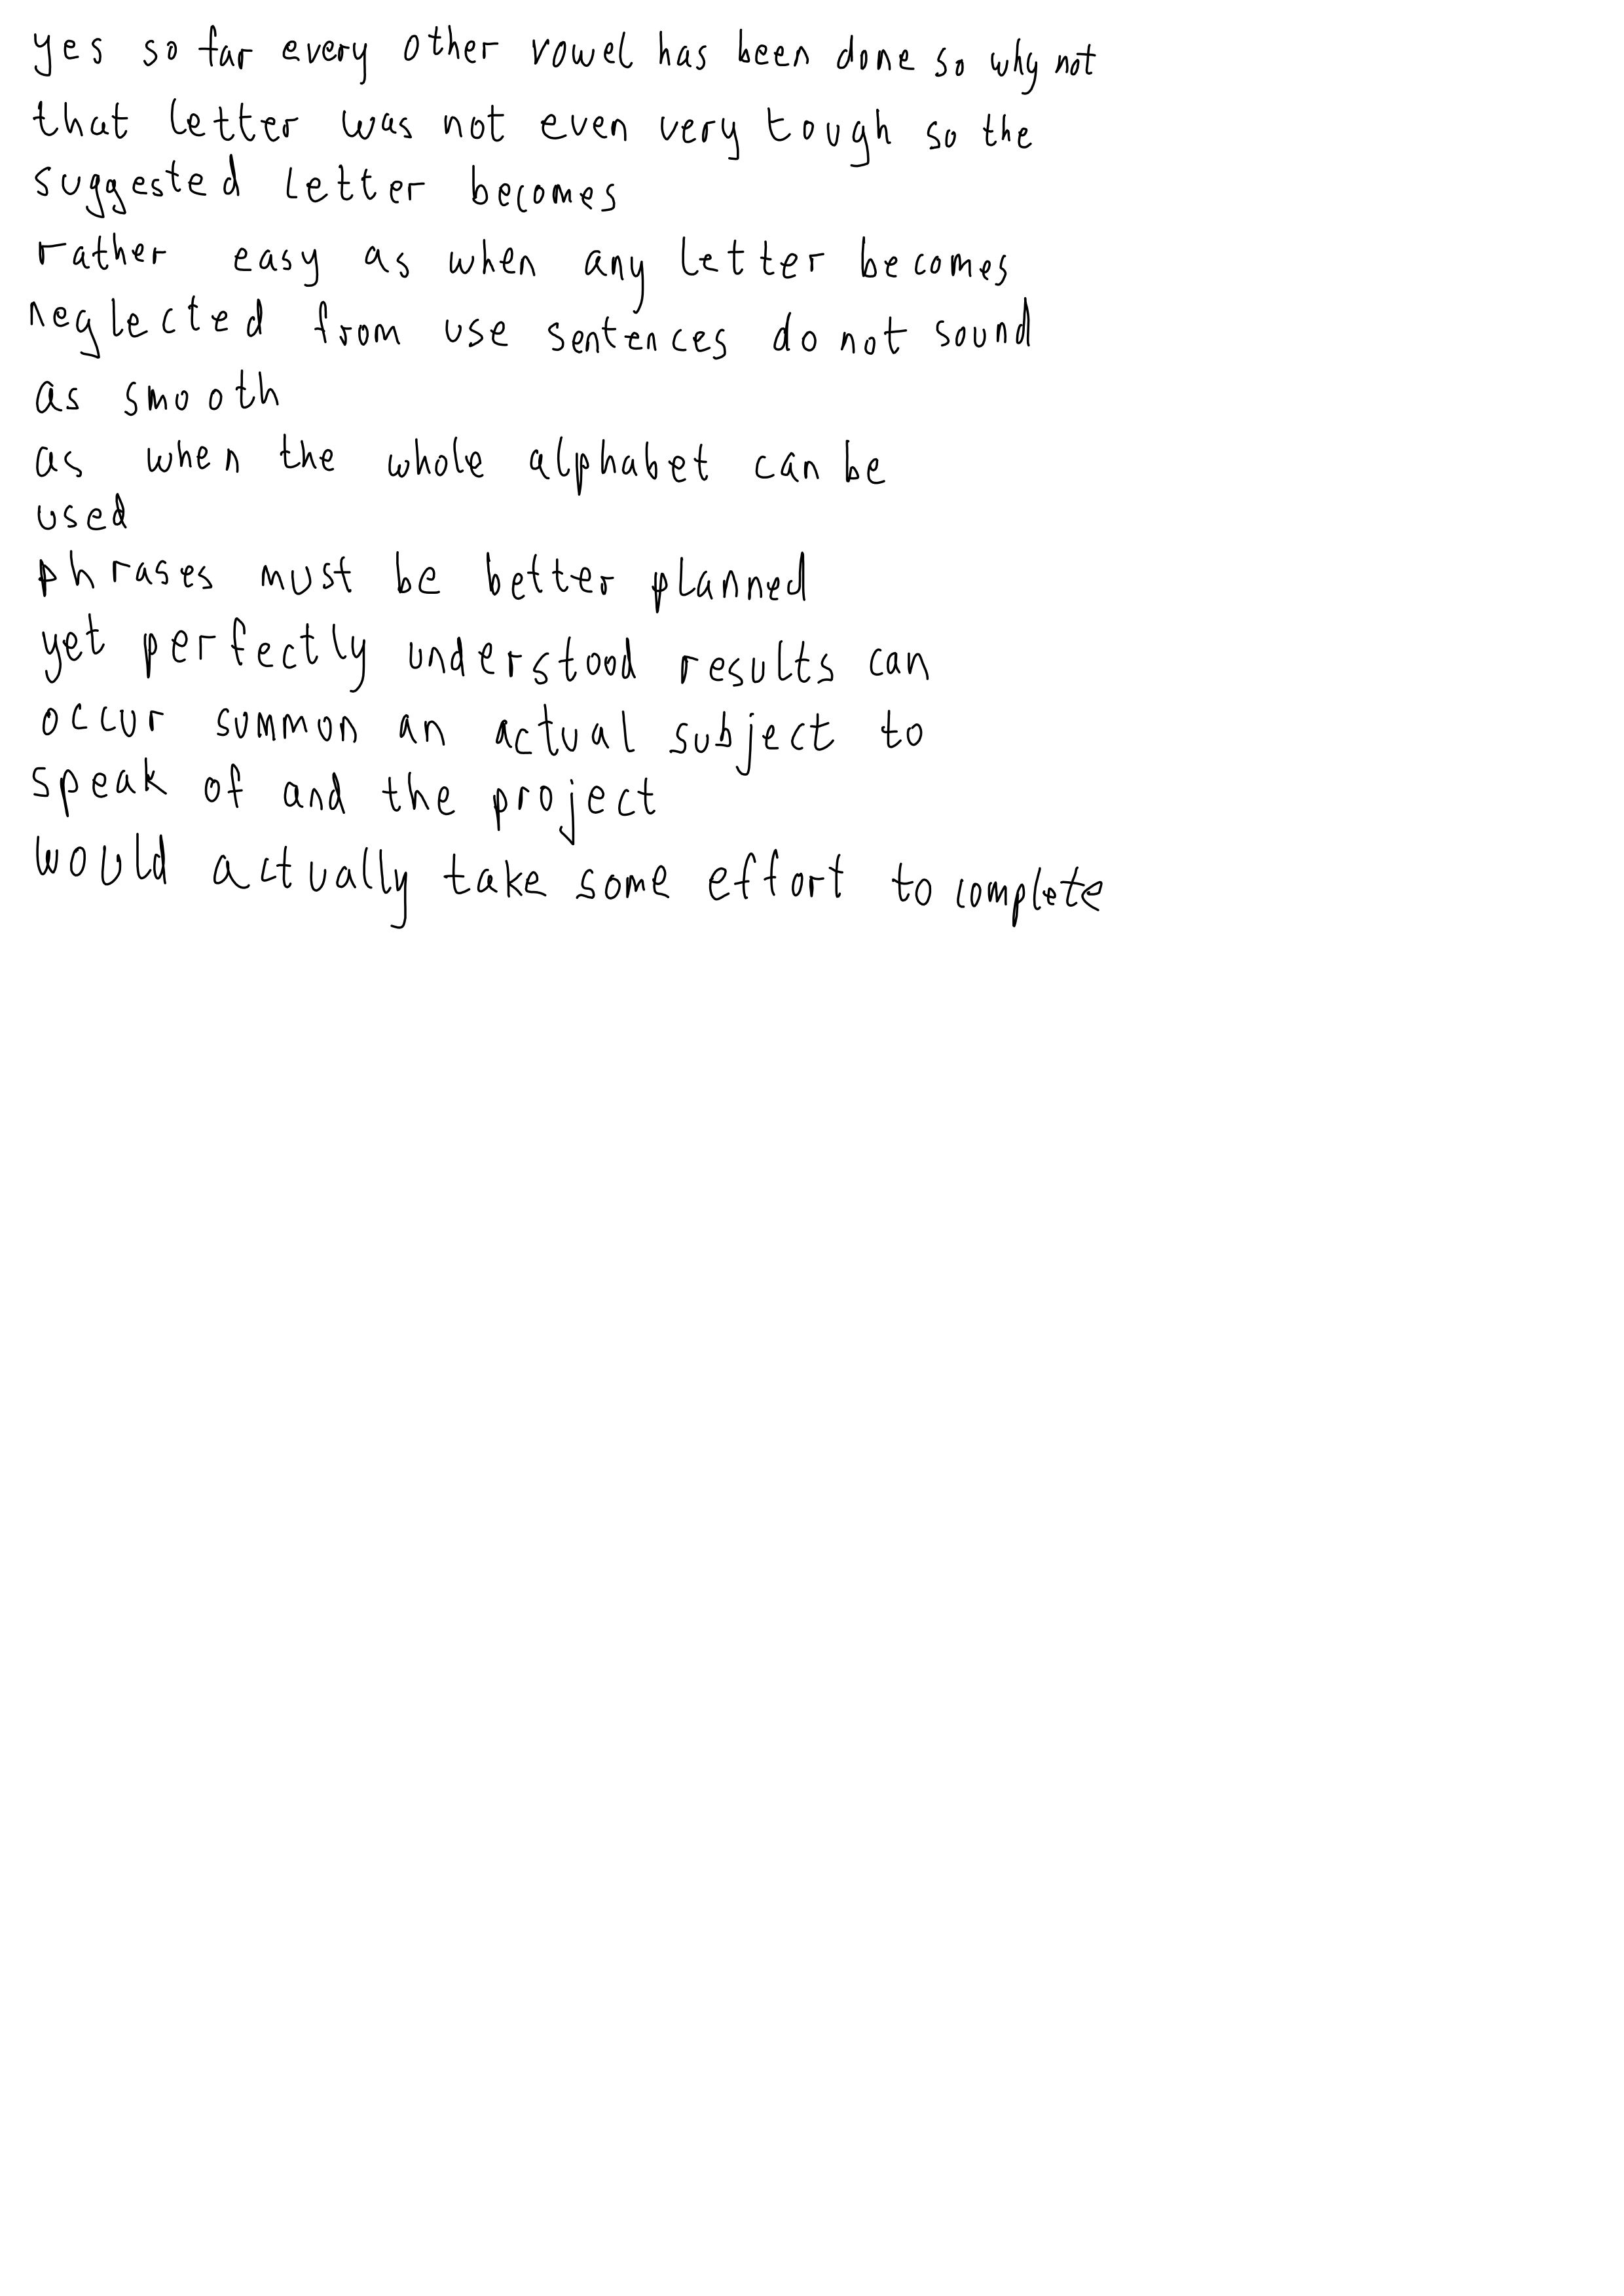 yes so far every other vowel has been done so why not
that letter was not even very tough so the
suggested letter becomes
rather easy as when any letter becomes
neglected from use sentences do not sound
as smooth
as when the whole alphabet can be
used
phrases must be better planned
yet perfectly understood results can
occur summon an actual subject to
speak of and the project
would actually take some effort to complete